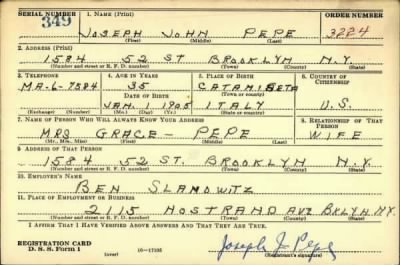 SERIAL NUMBER 1. NAME (Print) ORDER NUMBER
349 JOSEPH JOHN PEPE 3224
(First) (Middle) (Last)
2. ADDRESS (Print)
1584 52 ST BROOKLYN N.Y.
(Number and street or R. F. D. number) (Town) (County) (State)
3. TELEPHONE 4. AGE IN YEARS 5. PLACE OF BIRTH 6. COUNTRY OF CITIZENSHIP
MA-6-7584 35
DATE OF BIRTH (Town or county)
JAN. 1 1905 ITALY U.S.
(Exchange) (Number) (Mo.) (Day) (Yr.) (State or country)
7. NAME OF PERSON WHO WILL ALWAYS KNOW YOUR ADDRESS 8. RELATIONSHIP OF THAT PERSON
MRS GRACE - PEPE WIFE
(Mr., Mrs., Miss) (First) (Middle) (Last)
9. ADDRESS OF THAT PERSON
1584 52 ST. BROOKLYN N.Y.
(Number and street or R. F. D. number) (Town) (County) (State)
10. EMPLOYER'S NAME
BEN SLAMOWITZ
11. PLACE OF EMPLOYMENT OR BUSINESS
2115 NOSTRAND AVE BKLYN N.Y.
(Number and street or R. F. D. number) (Town) (County) (State)
I AFFIRM THAT I HAVE VERIFIED ABOVE ANSWERS AND THAT THEY ARE TRUE.
REGISTRATION CARD
D. S. S. Form 1 (over) Joseph J. Pepe
(Registrant's signature)